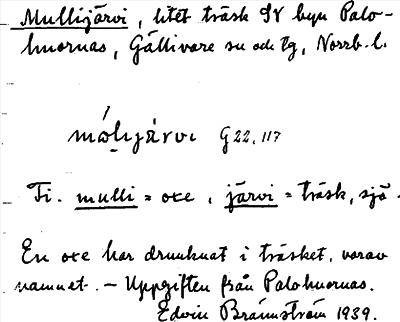 Mullijärvi, litet träsk SV byn Palo-
huornas, Gällivare sn och tg, Norrb. l.
G 22.117
Fi. mulli = oxe, järvi = träsk, sjö.
En oxe har drunknat i träsket, varav
namnet. – Uppgiften från Palohuornas.
Edvin Brännström 1939.